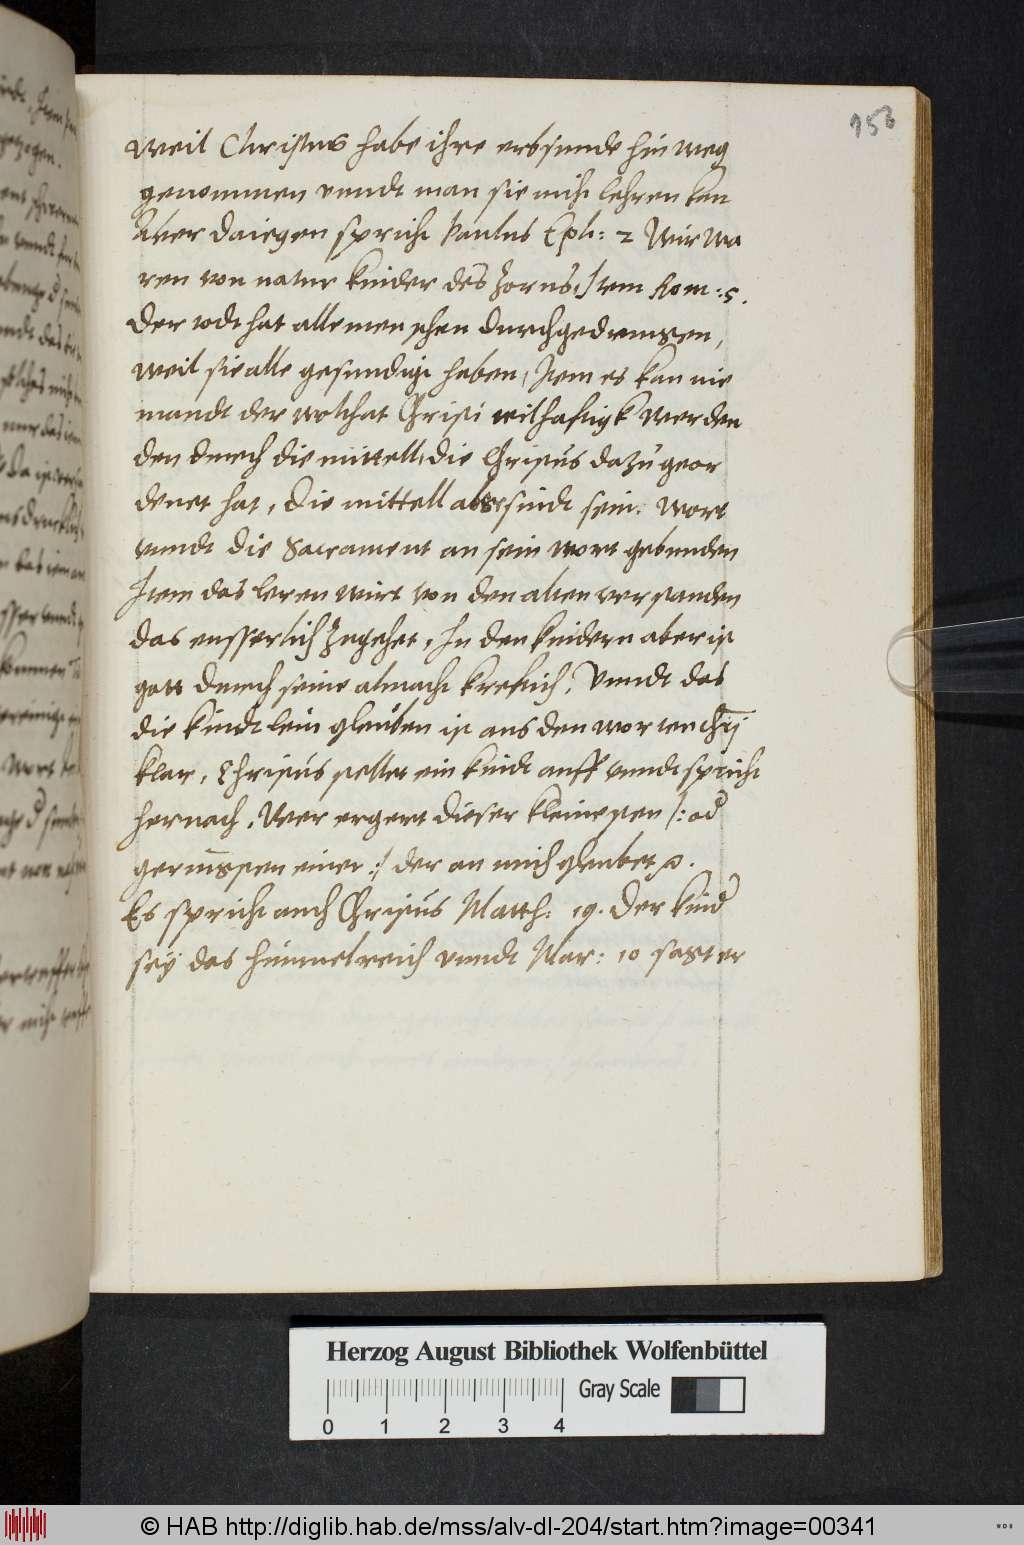 153
Weil Christus habe ihre erbsunde hin weg
genommen vnndt man sie nicht lehren kan
Aber daiegen spricht Paulus Eph: 2 Wir wa
ren von natur kinder des Zorns, Item Rom: 5.
Der todt hat alle menschen durchgedrungen,
weil sie alle gesundigt haben, Item es kan nie
mandt der wolthat Christi teilhafftigk werden
den durch die mittell, die Christus dazu geor
denet hat, Die mittell aber sindt sein: wort
vnndt die Sacrament an sein wort gebunden
Item das leren wirt von den alten verstanden
das eusserlich zugehet, In den kindern aber ist
gott durch seine almacht krefftich, Vnndt das
die kindtlein gleuben ist aus den worten Chrī
klar, Christus stellet ein kindt auff vnndt spricht
hernach, Wer ergert dieser kleinesten /: od
geringsten einer :/ der an mich gleubet
Es spricht auch Christus Matth: 19. Der kind
seÿ das himmelreich vnndt Mar: 10 saget er
Herzog August Bibliothek Wolfenbüttel
Gray Scale
0 1 2 3 4
© HAB http://diglib.hab.de/mss/alv-dl-204/start.htm?image=00341